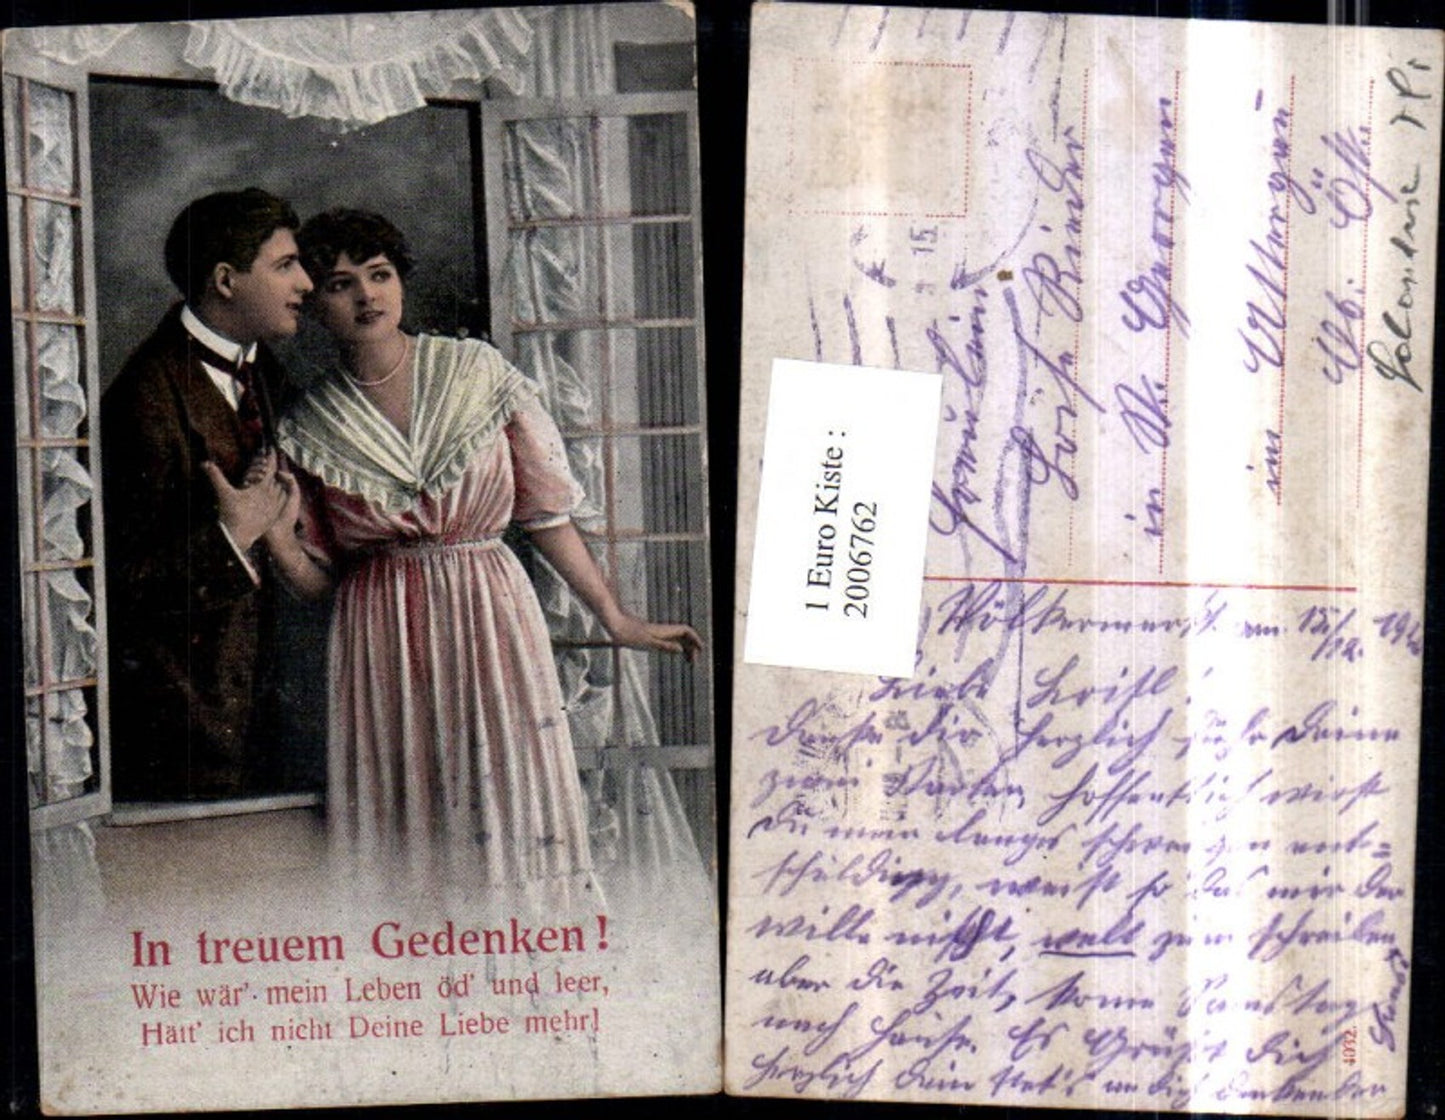 In treuem Gedenken!
Wie wär' mein Leben öd' und leer,
Hätt' ich nicht Deine Liebe mehr!
1 Euro Kiste :
2006762
15
Fräulein
Rinder
in St. Georgen
im Attergau
Ob. Öst.
am 15/12. 19
Liebe
Danke Dir herzlich für Deine
zwei Karten, hoffentlich wirst
Du mein langes schweigen ent=
schuldigen, weist so das mir der
wille nicht fehlt zum schreiben
aber die Zeit, komme Samstag
nach Hause. Es Grüßt Dich
herzlich Dein stet's an Dich denkender
4032.